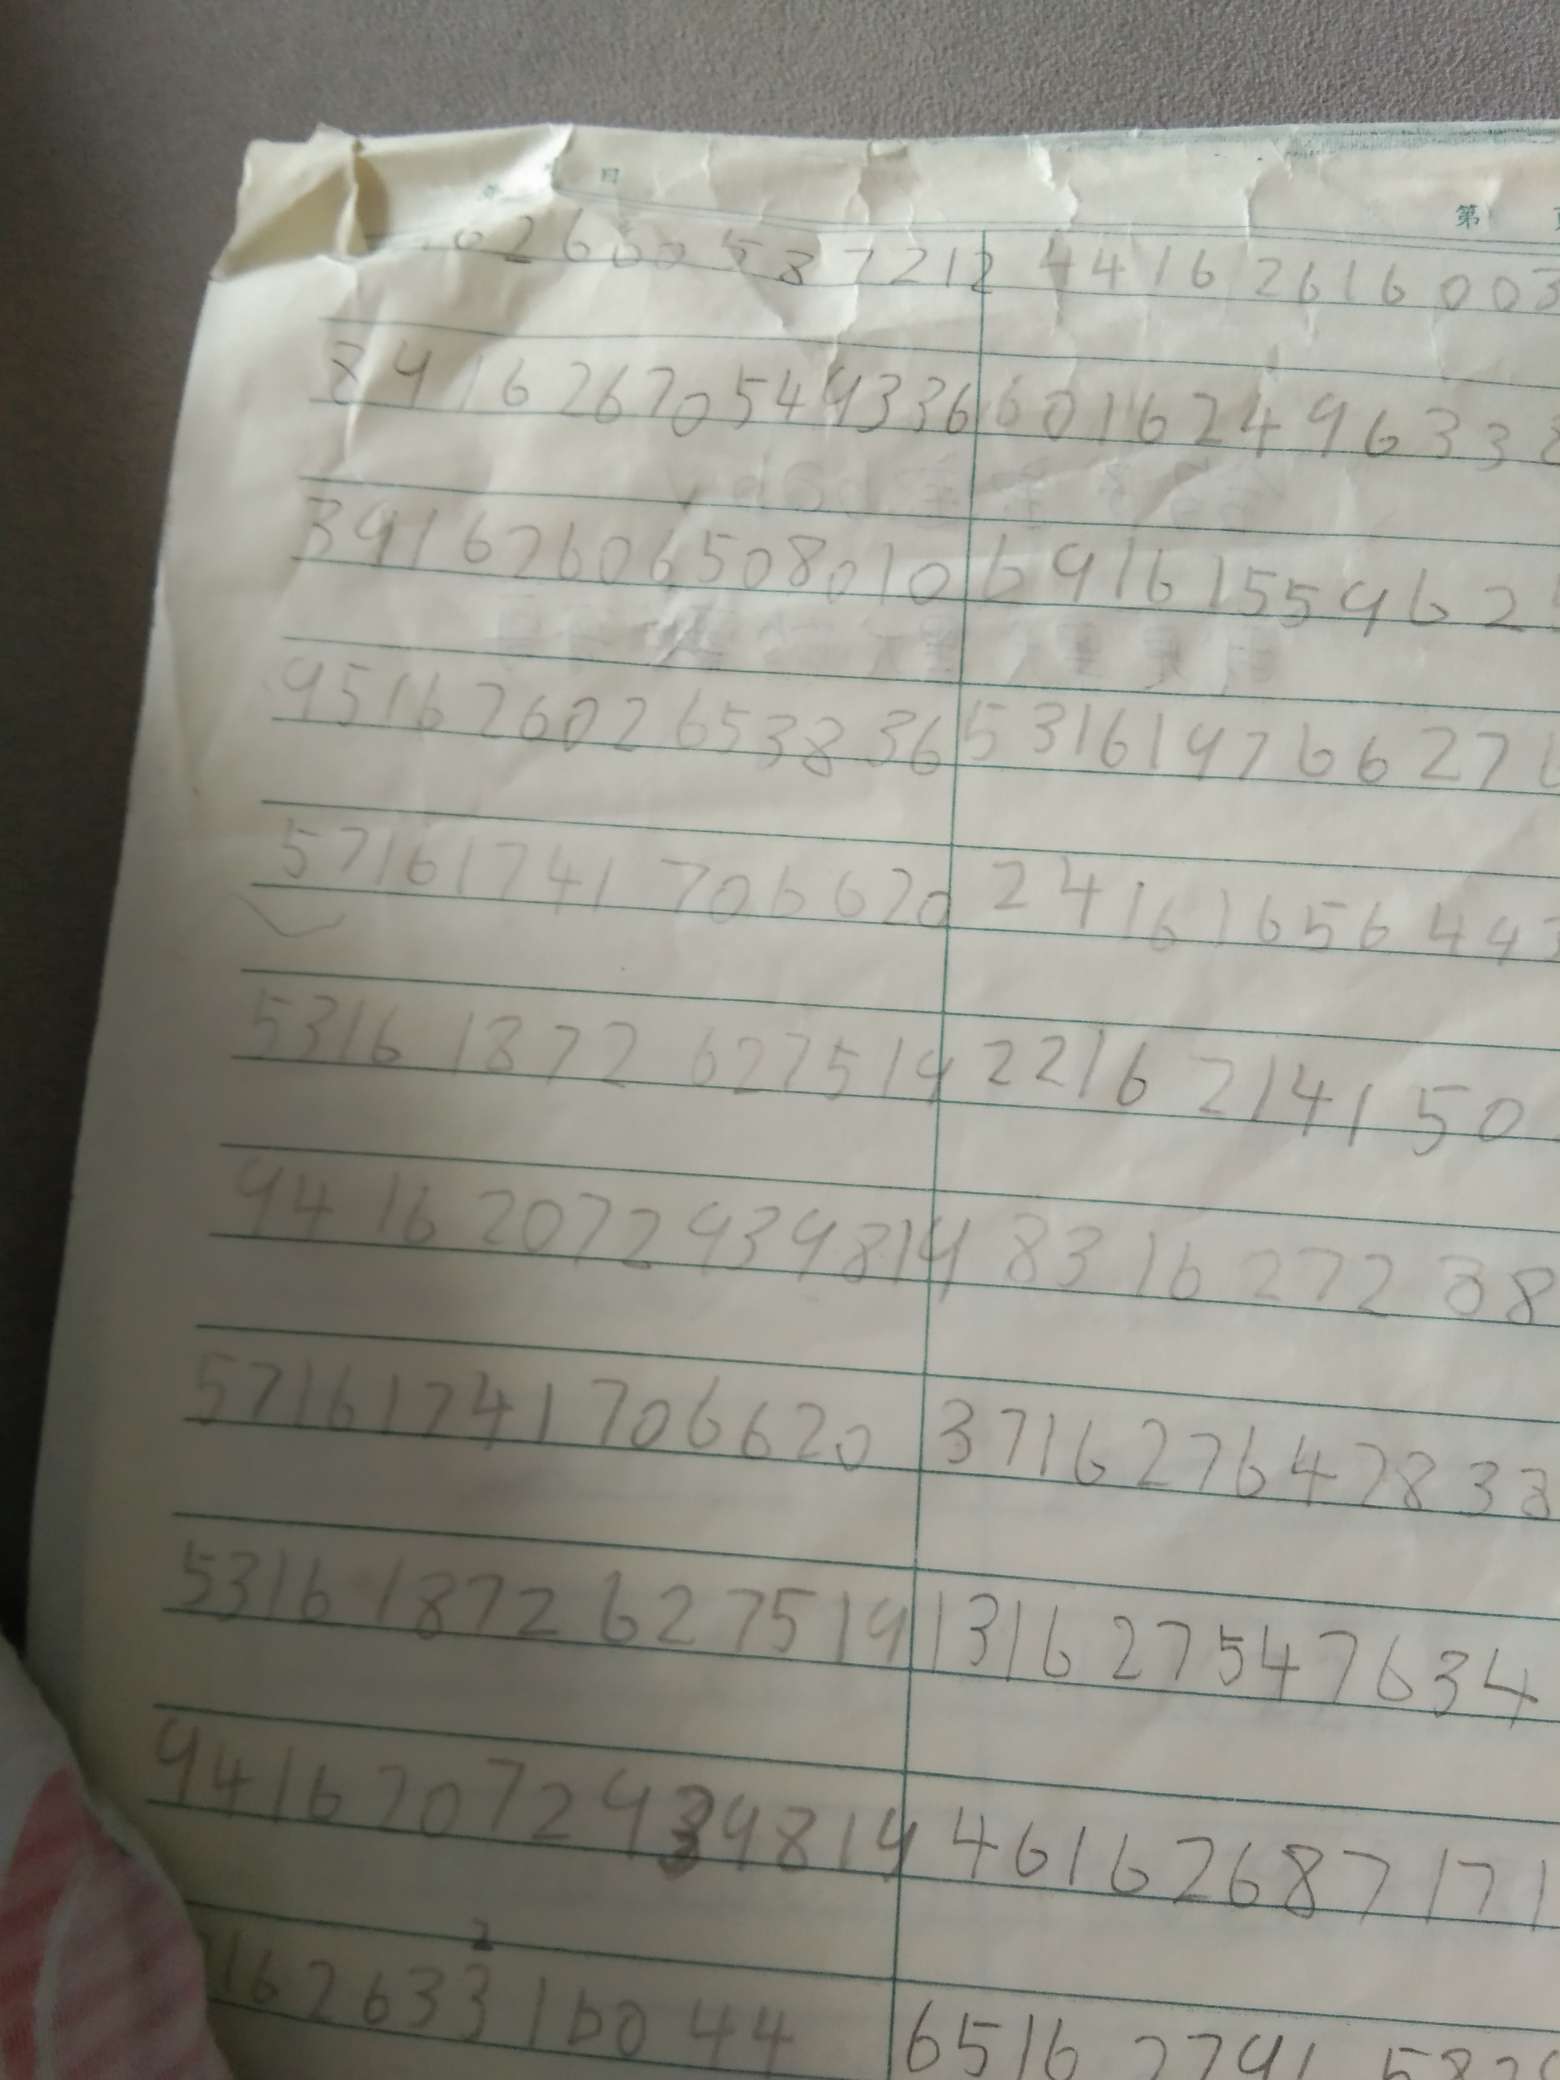 日 第
62660587212 4416261600
8416267054933660162496338
391626065080106916155962
951626026538365316197662 7
57161741706620 241616564 4
53161872627519 22162141 50
94162072939819 8316272 38
57161741706620 371627647833
53161872627519 131627547634
94162072939819 46162687171
2
162633160044 6516 2791 582